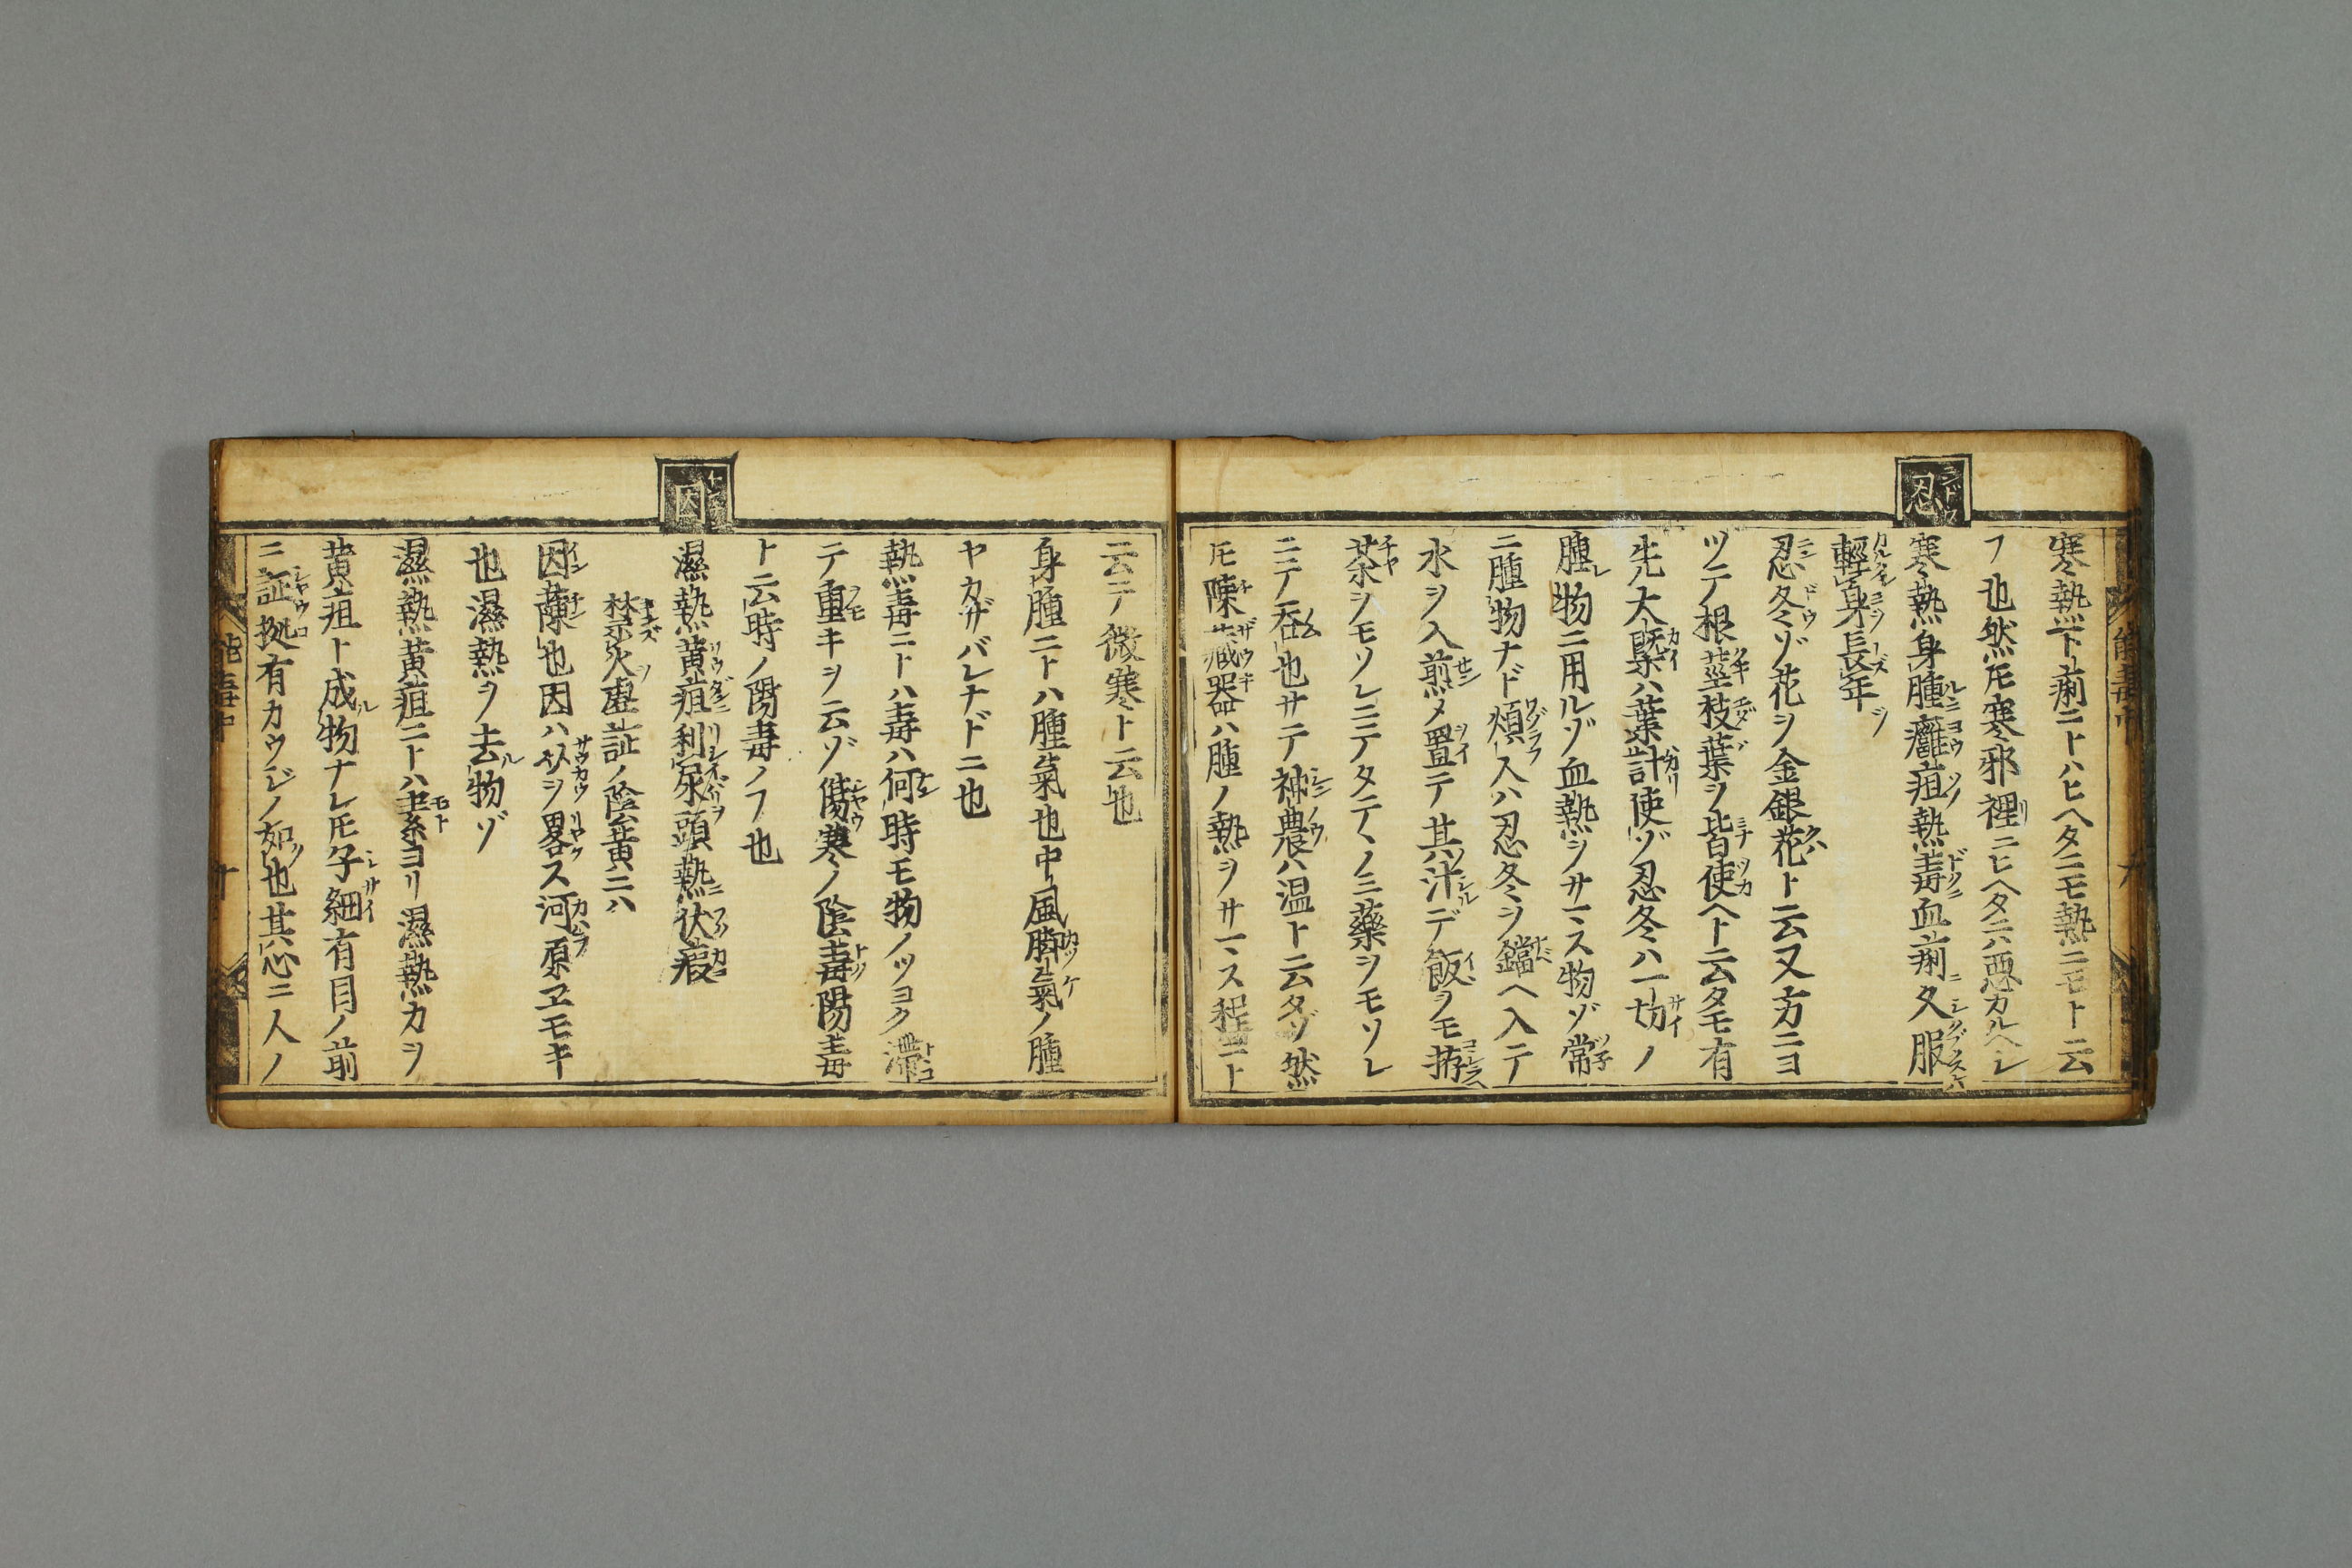 忍
寒熱下痢ニトハヒヘタニモ熱ニモト云
フ也然𪜈寒邪裡ニヒヘタニハ悪カルヘシ
寒熱身腫癰疽熱毒血痢久服
輕身長年
忍冬ゾ花ヲ金銀花ト云又方ニヨ
ツテ根莖枝葉ヲ皆使ヘト云タモ有
先大槩ハ葉計使ゾ忍冬ハ一切ノ
腫物ニ用ルゾ血熱ヲサマス物ゾ常
ニ腫物ナド煩入ハ忍冬ヲ鑵ヘ入テ
水ヲ入煎メ置テ其汁デ飯ヲモ
茶ヲモソレニテタテヽノミ藥ヲモソレ
ニテ呑也サテ神農ハ温ト云タゾ然
𪜈陳藏器ハ腫ノ熱ヲサマス程ニト
云テ微寒ト云也
身腫ニトハ腫氣也中風脚氣ノ腫
ヤカザバレナドニ也
熱毒ニトハ毒ハ何時モ物ノツヨク滞
テ重キヲ云ゾ傷寒ノ陰毒陽毒
ト云時ノ陽毒ノフ也
因
濕熱黄疸利尿頭熱伏瘕
禁火虚証ノ陰黄ニハ
因蔯也因ハ艸ヲ畧ス河原ヱモキ
也濕熱ヲ去物ゾ
濕熱黄疸ニトハ素ヨリ濕熱カヲ
黄疸ト成物ナレ𪜈子細有目ノ前
ニ証拠有カウジノ如也其心ニ人ノ
能毒中
十